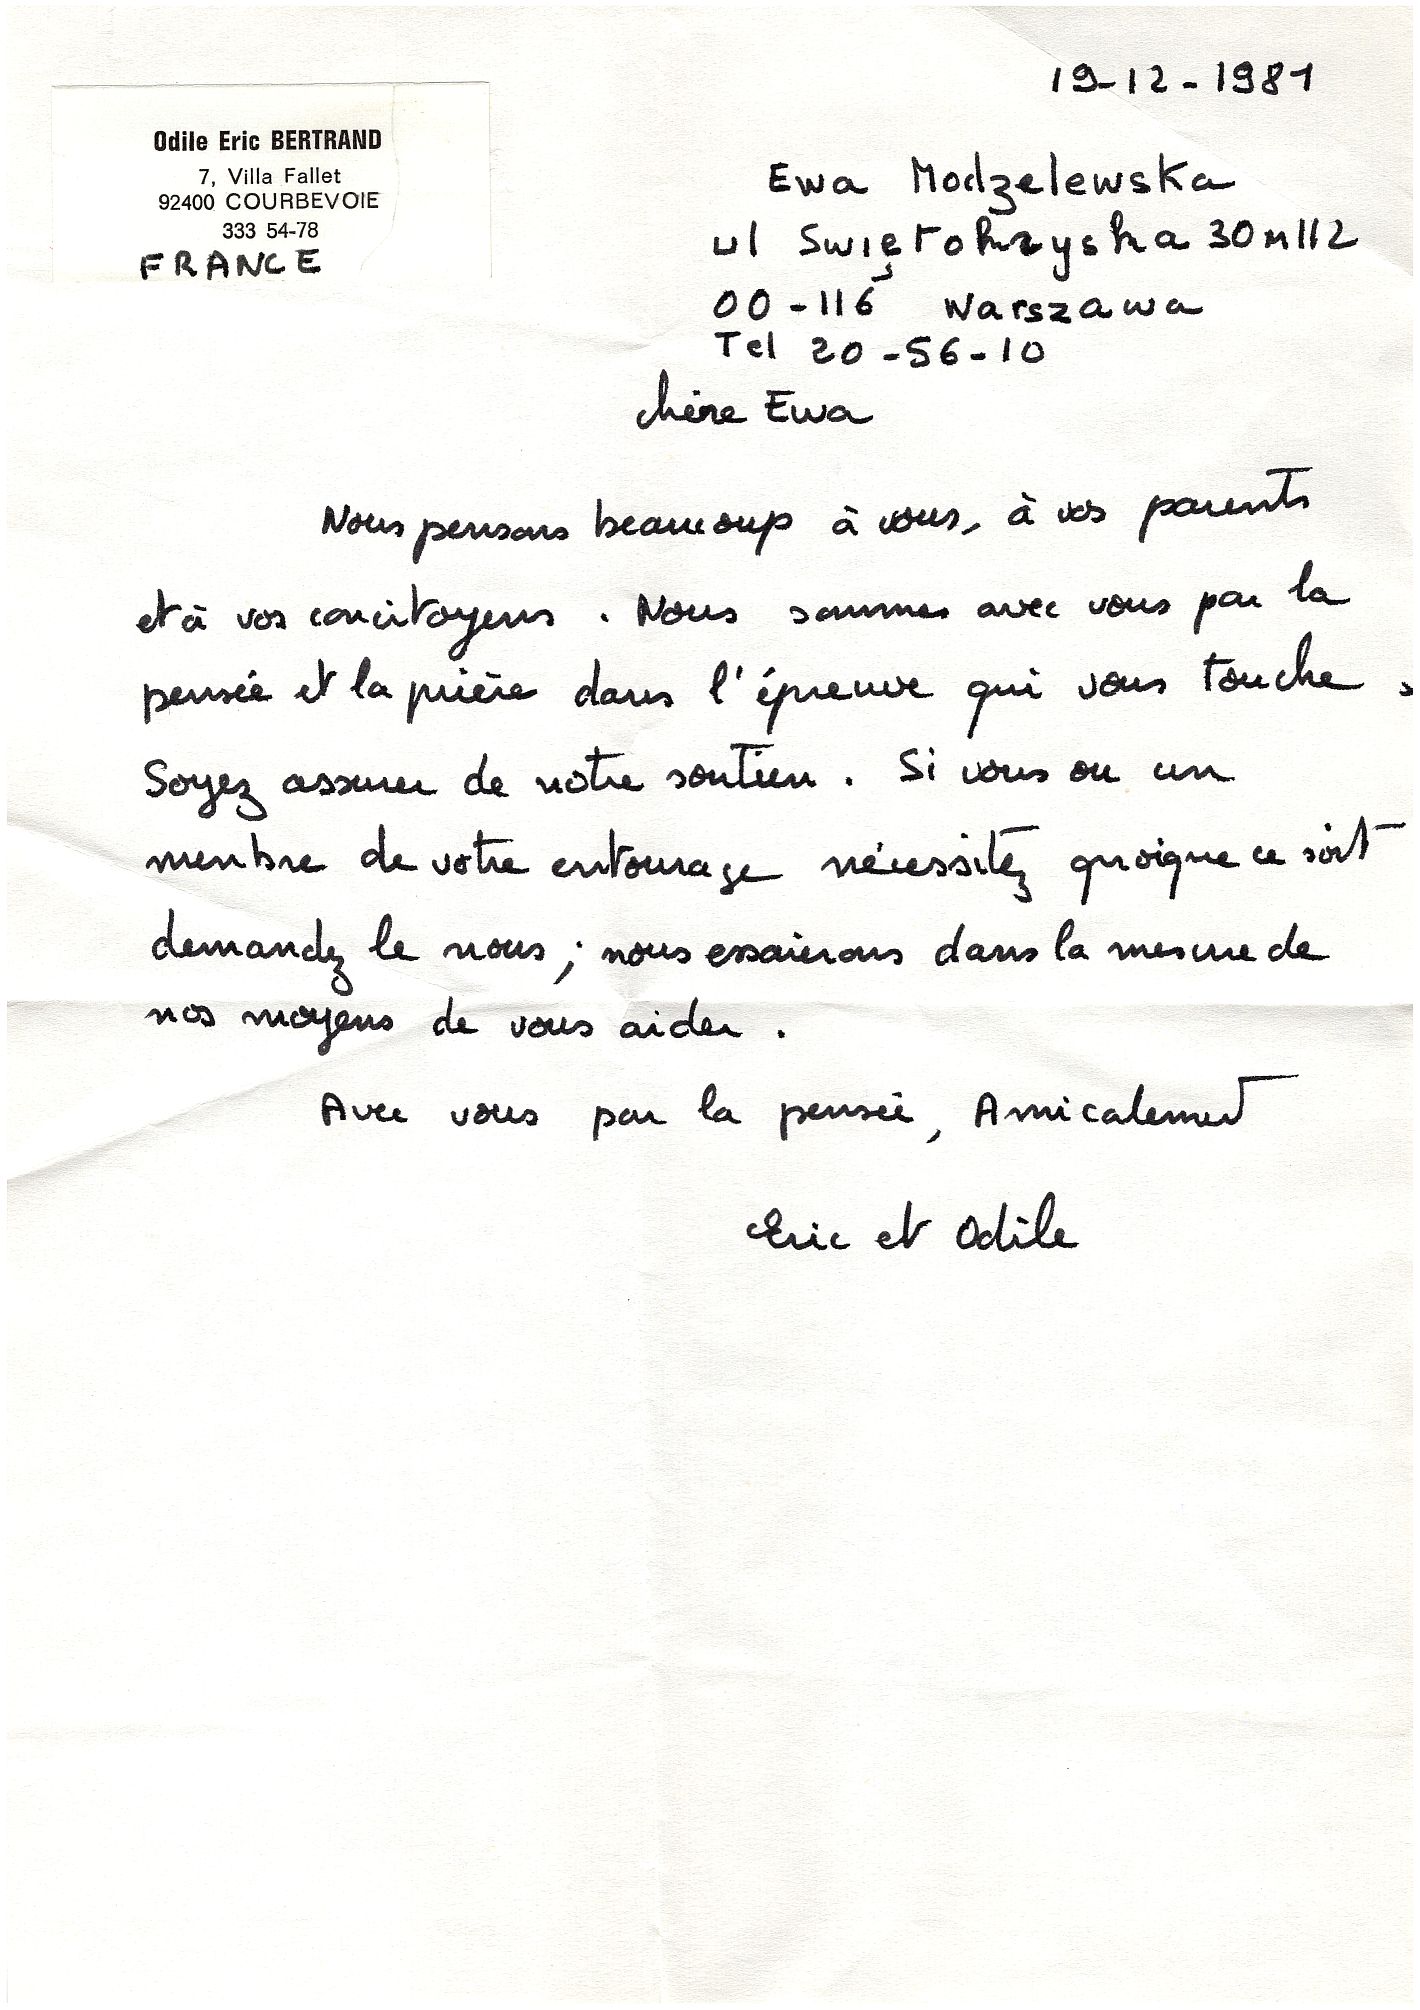 19-12-1981
Odile Eric BERTRAND
7, Villa Fallet
92400 COURBEVOIE
333 54-78
FRANCE
Ewa Modzelewska
ul Swiętokrzyska 30 m 112
00-116 Warszawa
Tel 20-56-10
chère Ewa
Nous pensons beaucoup à vous, à vos parents
et à vos concitoyens. Nous sommes avec vous par la
pensée et la prière dans l'épreuve qui vous touche.
Soyez assurer de notre soutien. Si vous ou un
menbre de votre entourage nécessitez quoique ce soit
demandez le nous; nous essaierons dans la mesure de
nos moyens de vous aider.
Avec vous par la pensée, Amicalement
Eric et Odile